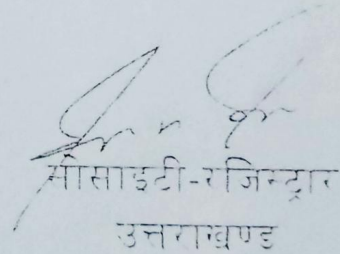 सोसाइटी-रजिस्ट्रार
उत्तराखण्ड